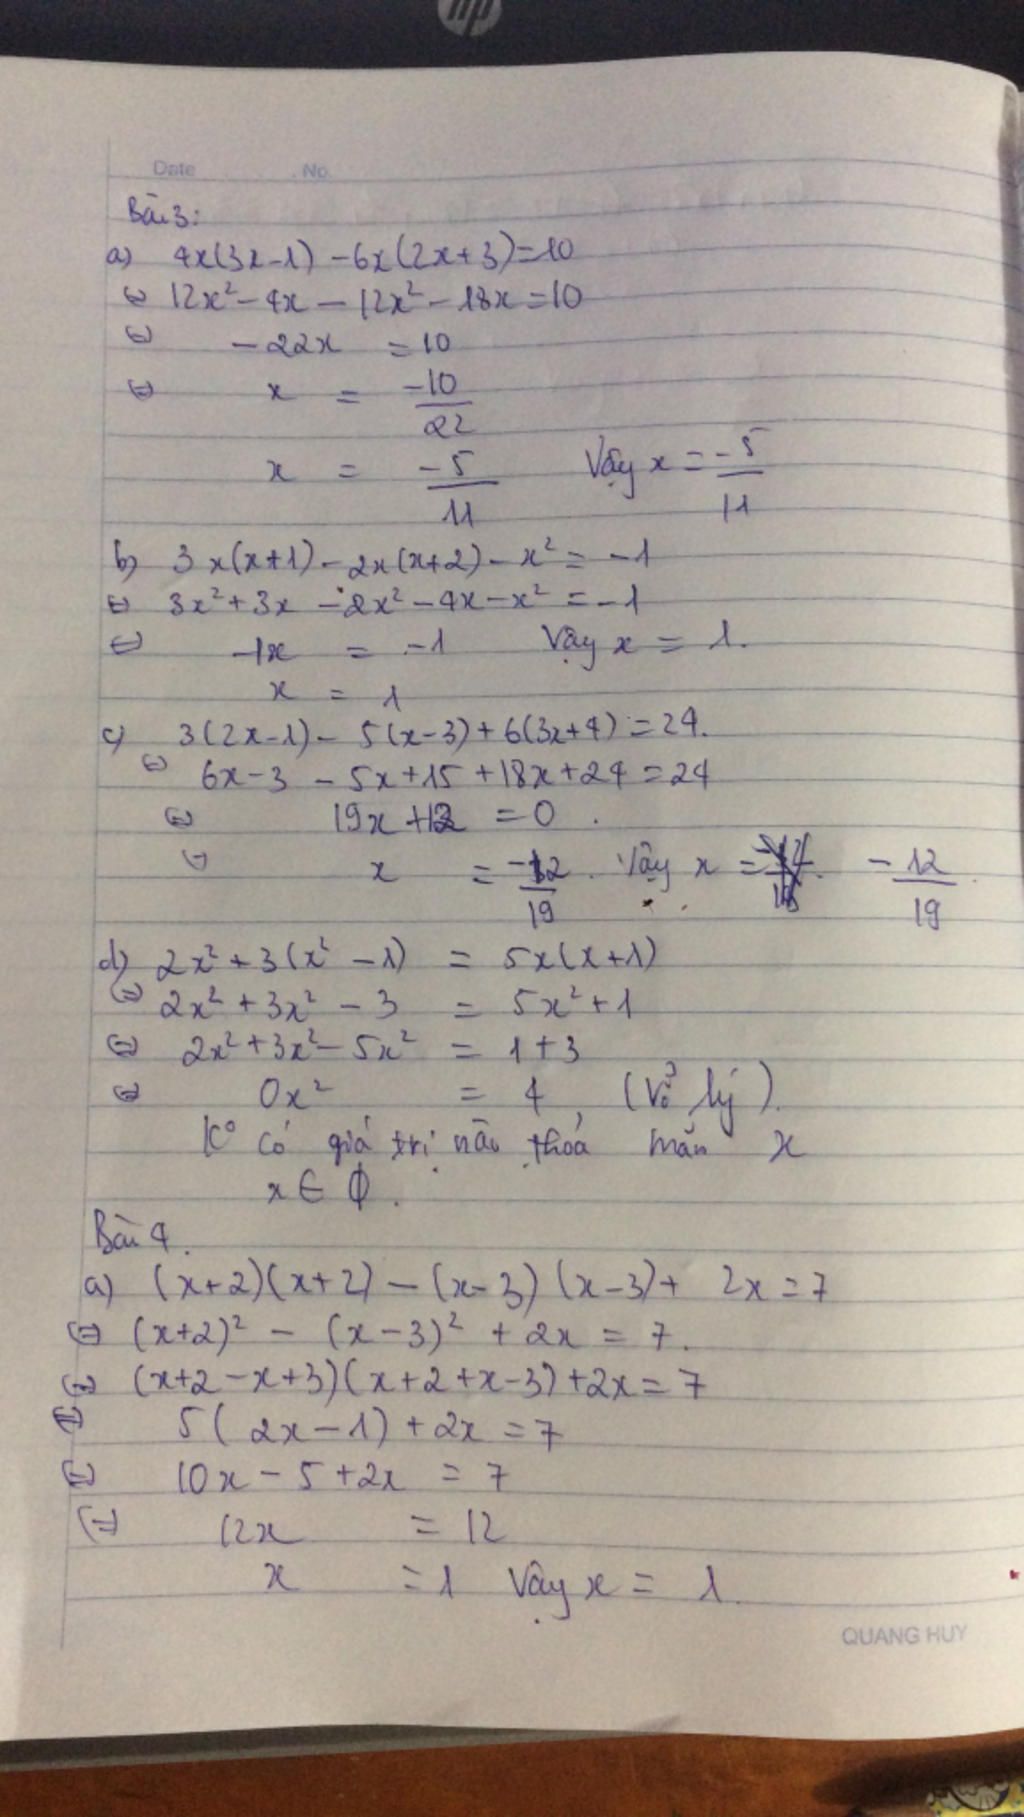 hp
Date No
Bài 3:
a) 4x(3x-1) - 6x(2x+3) = 10
⇔ 12x² - 4x - 12x² - 18x = 10
⇔ -22x = 10
⇔ x = -10/22
x = -5/11 Vậy x = -5/11
b) 3x(x+1) - 2x(x+2) - x² = -1
⇔ 3x² + 3x - 2x² - 4x - x² = -1
⇔ -1x = -1 Vậy x = 1.
x = 1
c) 3(2x-1) - 5(x-3) + 6(3x+4) = 24.
⇔ 6x - 3 - 5x + 15 + 18x + 24 = 24
⇔ 19x + 12 = 0.
⇔ x = -12/19. Vậy x = -12/19.
d) 2x² + 3(x² - 1) = 5x(x+1)
⇔ 2x² + 3x² - 3 = 5x² + 1
⇔ 2x² + 3x² - 5x² = 1 + 3
⇔ 0x² = 4 (Vô lý).
K° có giá trị nào thoả mãn x
x ∈ ∅.
Bài 4.
a) (x+2)(x+2) - (x-3)(x-3) + 2x = 7
⇔ (x+2)² - (x-3)² + 2x = 7.
⇔ (x+2-x+3)(x+2+x-3) + 2x = 7
⇔ 5(2x-1) + 2x = 7
⇔ 10x - 5 + 2x = 7
⇔ 12x = 12
x = 1 Vậy x = 1.
QUANG HUY